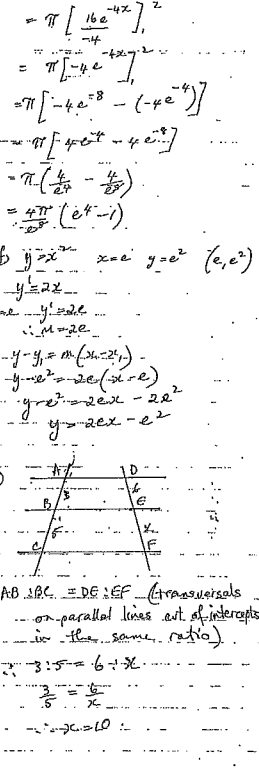 = π [ 16e^-4x / -4 ]₁²
= π [ -4e^-4x ]₁²
= π [ -4e^-8 - (-4e^-4) ]
= π [ 4e^-4 - 4e^-8 ]
= π ( 4/e⁴ - 4/e⁸ )
= 4π/e⁸ ( e⁴ - 1 )
) y = x² x = e y = e² (e, e²)
y' = 2x
= e y' = 2e
∴ m = 2e
y - y₁ = m(x - x₁)
y - e² = 2e(x - e)
y - e² = 2ex - 2e²
y = 2ex - e²
A D
3 6
B E
5 x
C F
AB : BC = DE : EF (transversals
on parallel lines cut of intercepts
in the same ratio)
∴ 3 : 5 = 6 : x
3/5 = 6/x
∴ x = 10